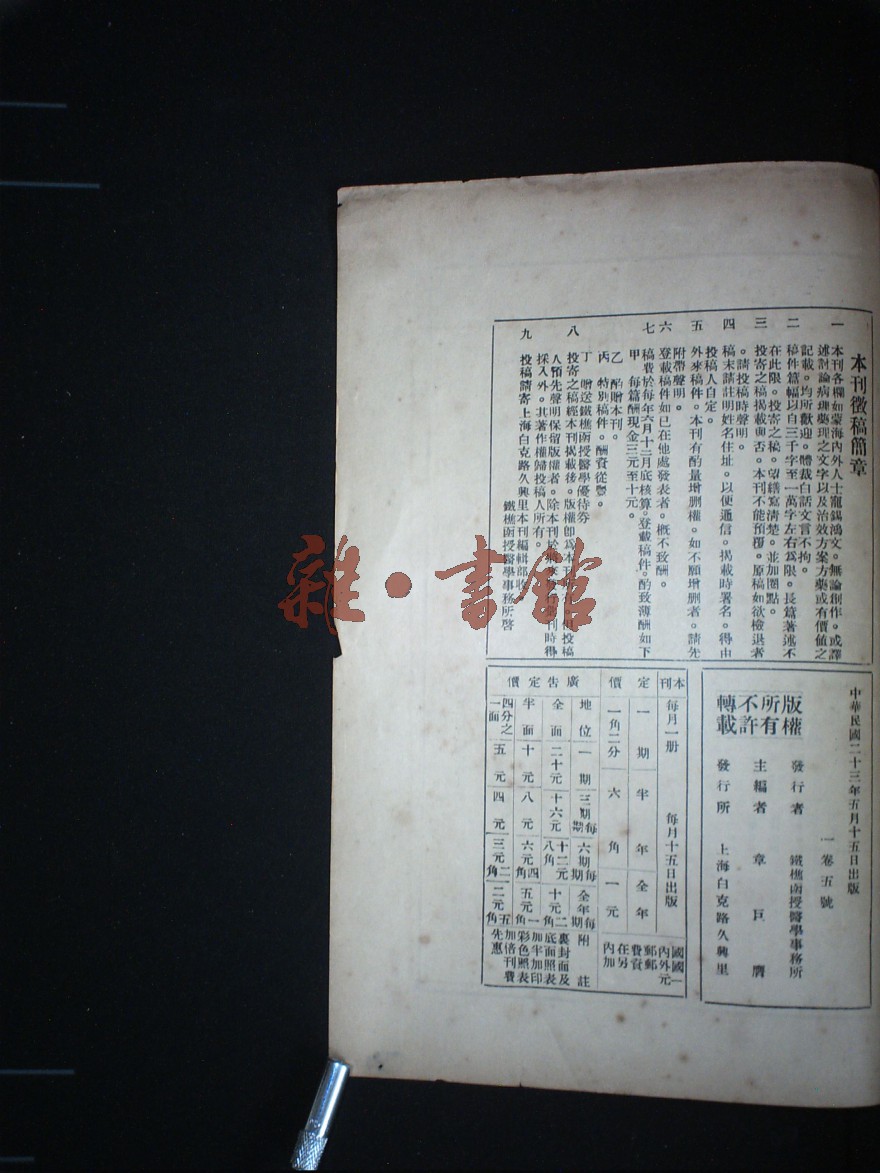 本刊徵稿簡章
一 本刊各欄如蒙海內外人士寵錫鴻文。無論創作。或譯
述討論病理藥理之文字以及治效方案方藥或有價值之
記載。均所歡迎。體裁白話文言不拘。
二 稿件篇幅以自三千字至一萬字左右爲限。長篇著述不
在此限。投寄之稿。望繕寫清楚。並加圈點。
三 投寄之稿揭載與否。本刊不能預覆。原稿如欲檢退者
。請投稿時聲明。
四 稿末請註明姓名住址。以便通信。揭載時署名。得由
投稿人自定。
五 外來稿件。本刊有酌量增删權。如不願增删者。請先
附帶聲明。
六 登載稿件如已在他處發表者。概不致酬。
七 稿費於每年六月十二月底核算。登載稿件。酌致薄酬如下
甲 每篇酬現金三元至十元。
乙 酌贈本刊。
丙 特別稿件。酬資從豐。
丁 贈送鐵樵函授醫學優待券
八 投寄之稿經本刊揭載後。版權即爲本刊所 投稿
人預先聲明保留版權者。除本刊於 刊時得
採入外。其著作權歸投稿人所有。
九 投稿請寄上海白克路久興里本刊編輯部收
鐵樵函授醫學事務所啓
中華民國二十三年五月十五日出版
一卷五號
版權所有不許轉載
發行者 鐵樵函授醫學事務所
主編者 章巨膺
發行所 上海白克路久興里
本刊定價
每月一册 每月十五日出版
一期 半年 全年
一角二分 六角 一元
國內郵費在內 國外另加一元
廣告定價
地位 一期 三期每期 六期每期 全年每期 附註
全面 二十元 十六元 十二元八角 十元二角
半面 十元 八元 六元四角 五元一角
四分之一面 五元 四元 三元二角 二元五角
裏封面及底面照表加半加印彩色照表加倍刊費先惠
雜·書館